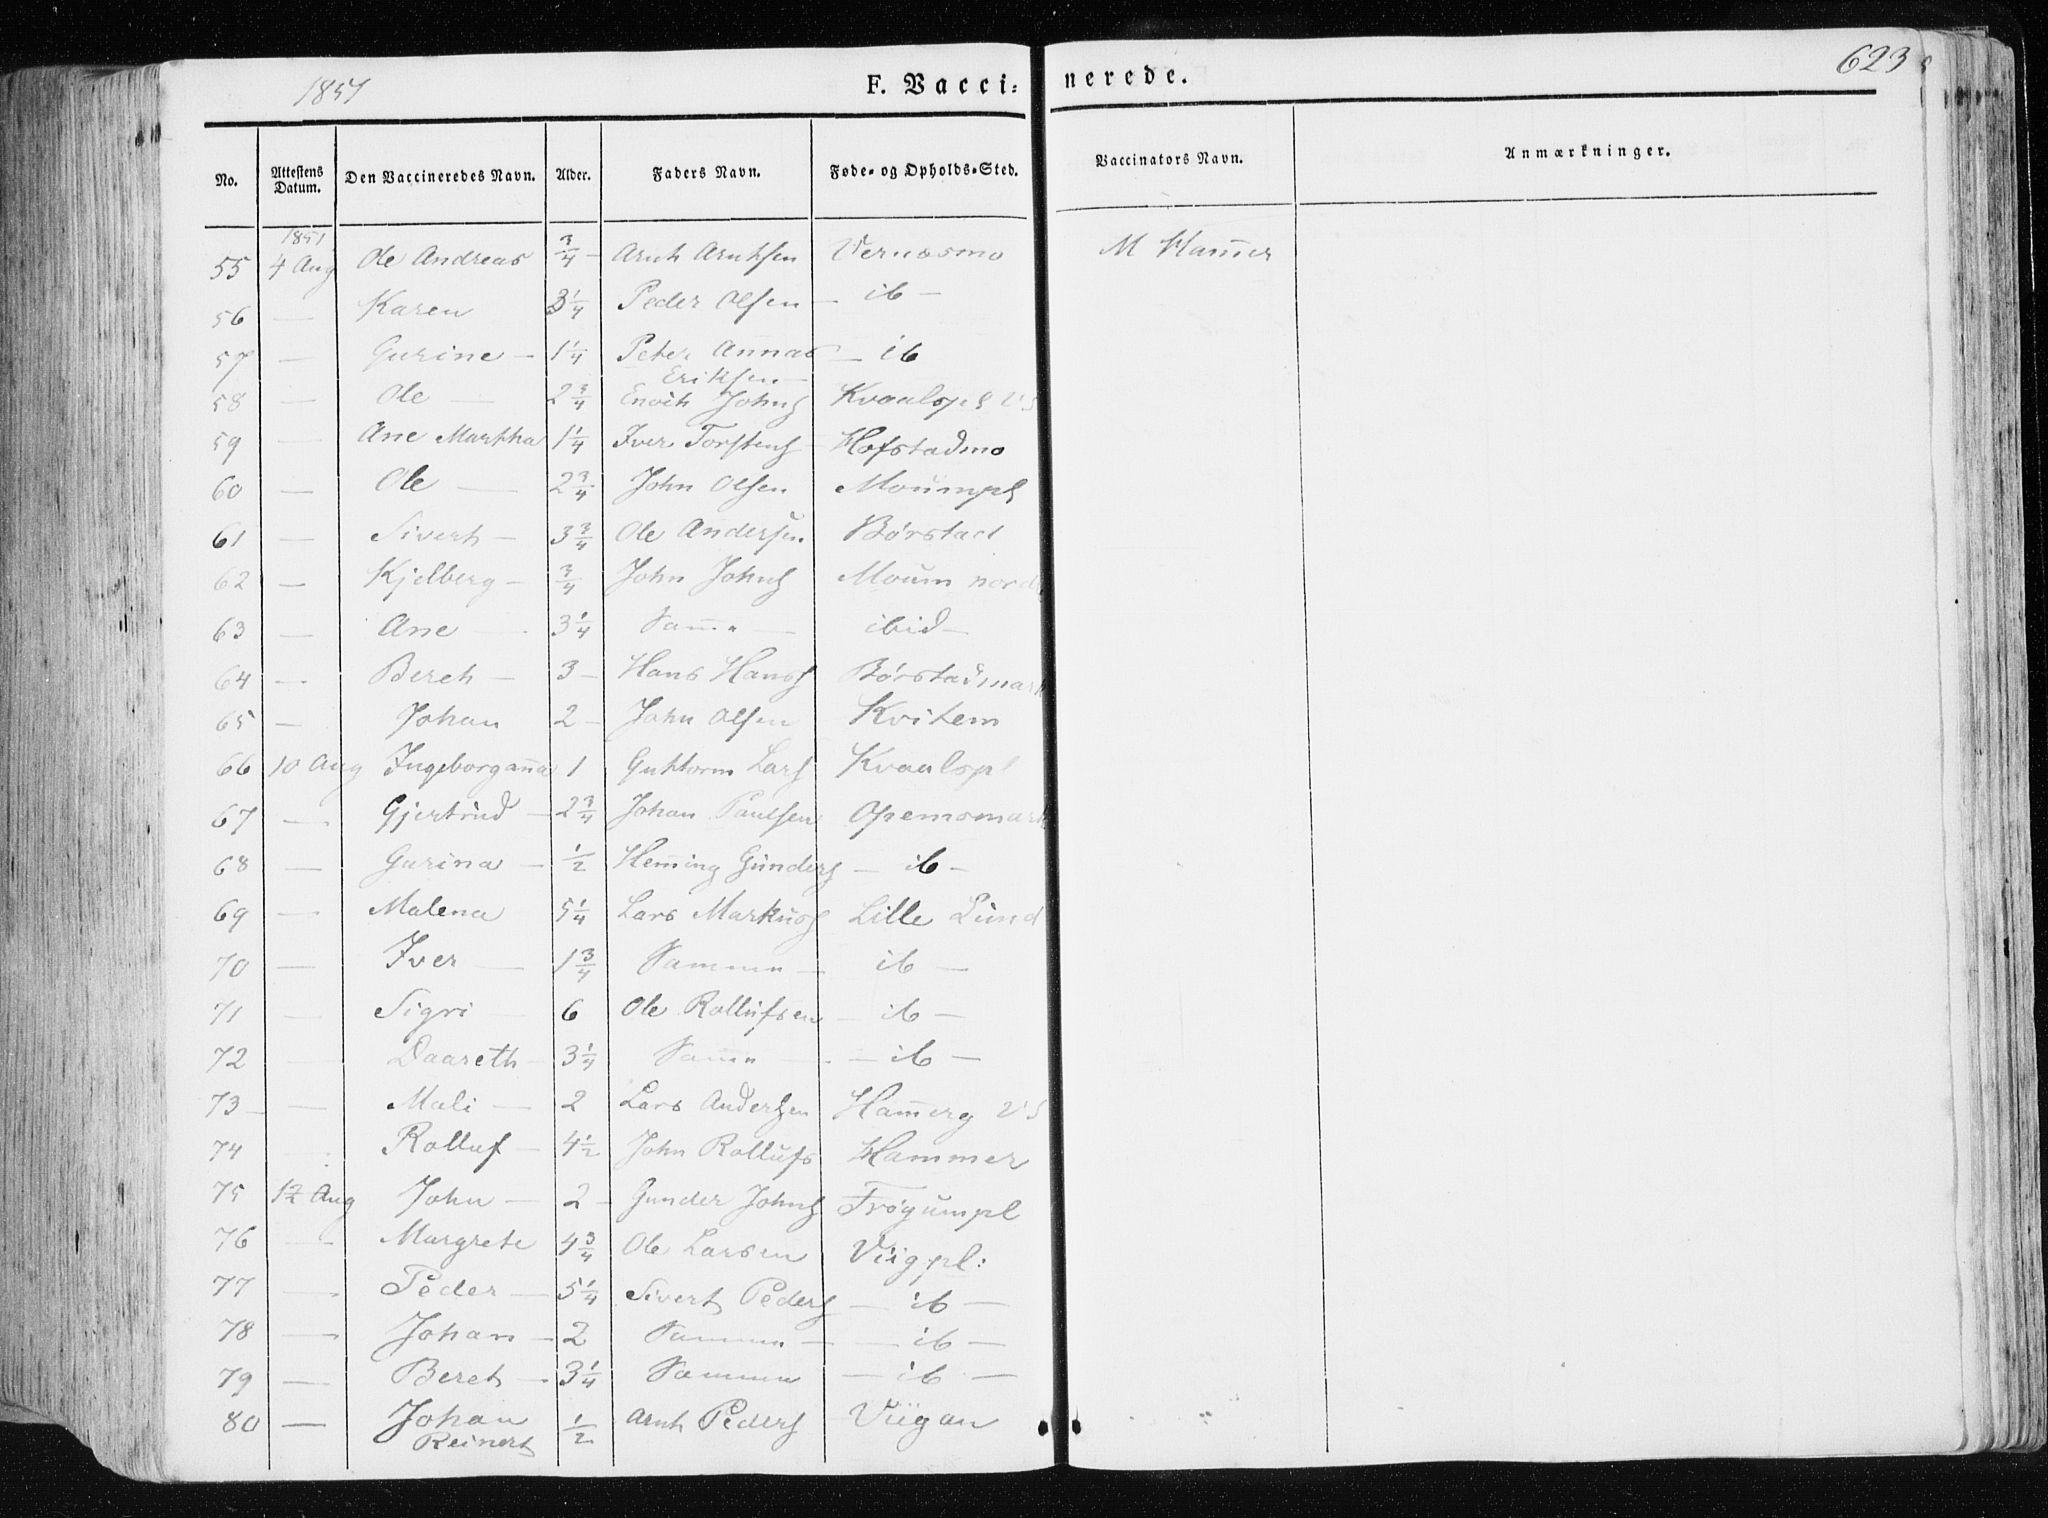 1851
F. Vacci=
nerede.
623
No. Attestens Datum. Den Vaccineredes Navn. Alder. Faders Navn. Føde- og Opholds-Sted. Vaccinators Navn. Anmærkninger.
1851
55 4 Aug Ole Andreas 3/4 - Arnt Arntsen Vernæsmo M Ham̄er
56 — Karen 3 1/4 Peder Olsen — ib —
57 — Gurine — 1 1/4 Peter Annas — ib
Eriksen —
58 — Ole — 2 3/4 Enoch Johns Kvaalspl VS
59 — Ane Martha 1 1/4 Iver Torstens Hofstadmo
60 — Ole — 2 3/4 John Olsen Moumpl
61 — Sivert — 3 3/4 Ole Andersen Børstad
62 — Kjelberg — 3/4 John Johns Moum nord
63 — Ane — 3 1/4 Sam̄e — ibid —
64 — Beret — 3 — Hans Hanss Børstadmark
65 — Johan 2 — John Olsen Kvitem
66 10 Aug Ingeborgan̄a 1 Guttorm Lars Kvaalspl
67 — Gjertrud — 2 3/4 Johan Paulsen Opemsmark
68 — Gurina — 1/2 Hem̄ing Gunders — ib —
69 — Malena 5 1/4 Lars Markuss Lille Lund
70 — Iver — 1 3/4 Samme — ib —
71 — Sigri — 6 Ole Rollufsen — ib —
72 — Daareth — 3 1/4 Sam̄e — — ib —
73 — — Mali — 2 Lars Andersen Ham̄erg VS
74 — Rolluf — 4 1/2 John Rollufs Hammer
75 12 Aug John — 2 — Gunder Johns Frøgumpl
76 — Margrete 4 3/4 Ole Larsen Viigpl:
77 — Peder — 5 1/4 Sivert Peders — ib —
78 — Johan — 2 Samme — — ib —
79 — Beret — 3 1/4 Samme — ib —
80 — Johan 1/2 Arnt Peders Viigan
Reinert